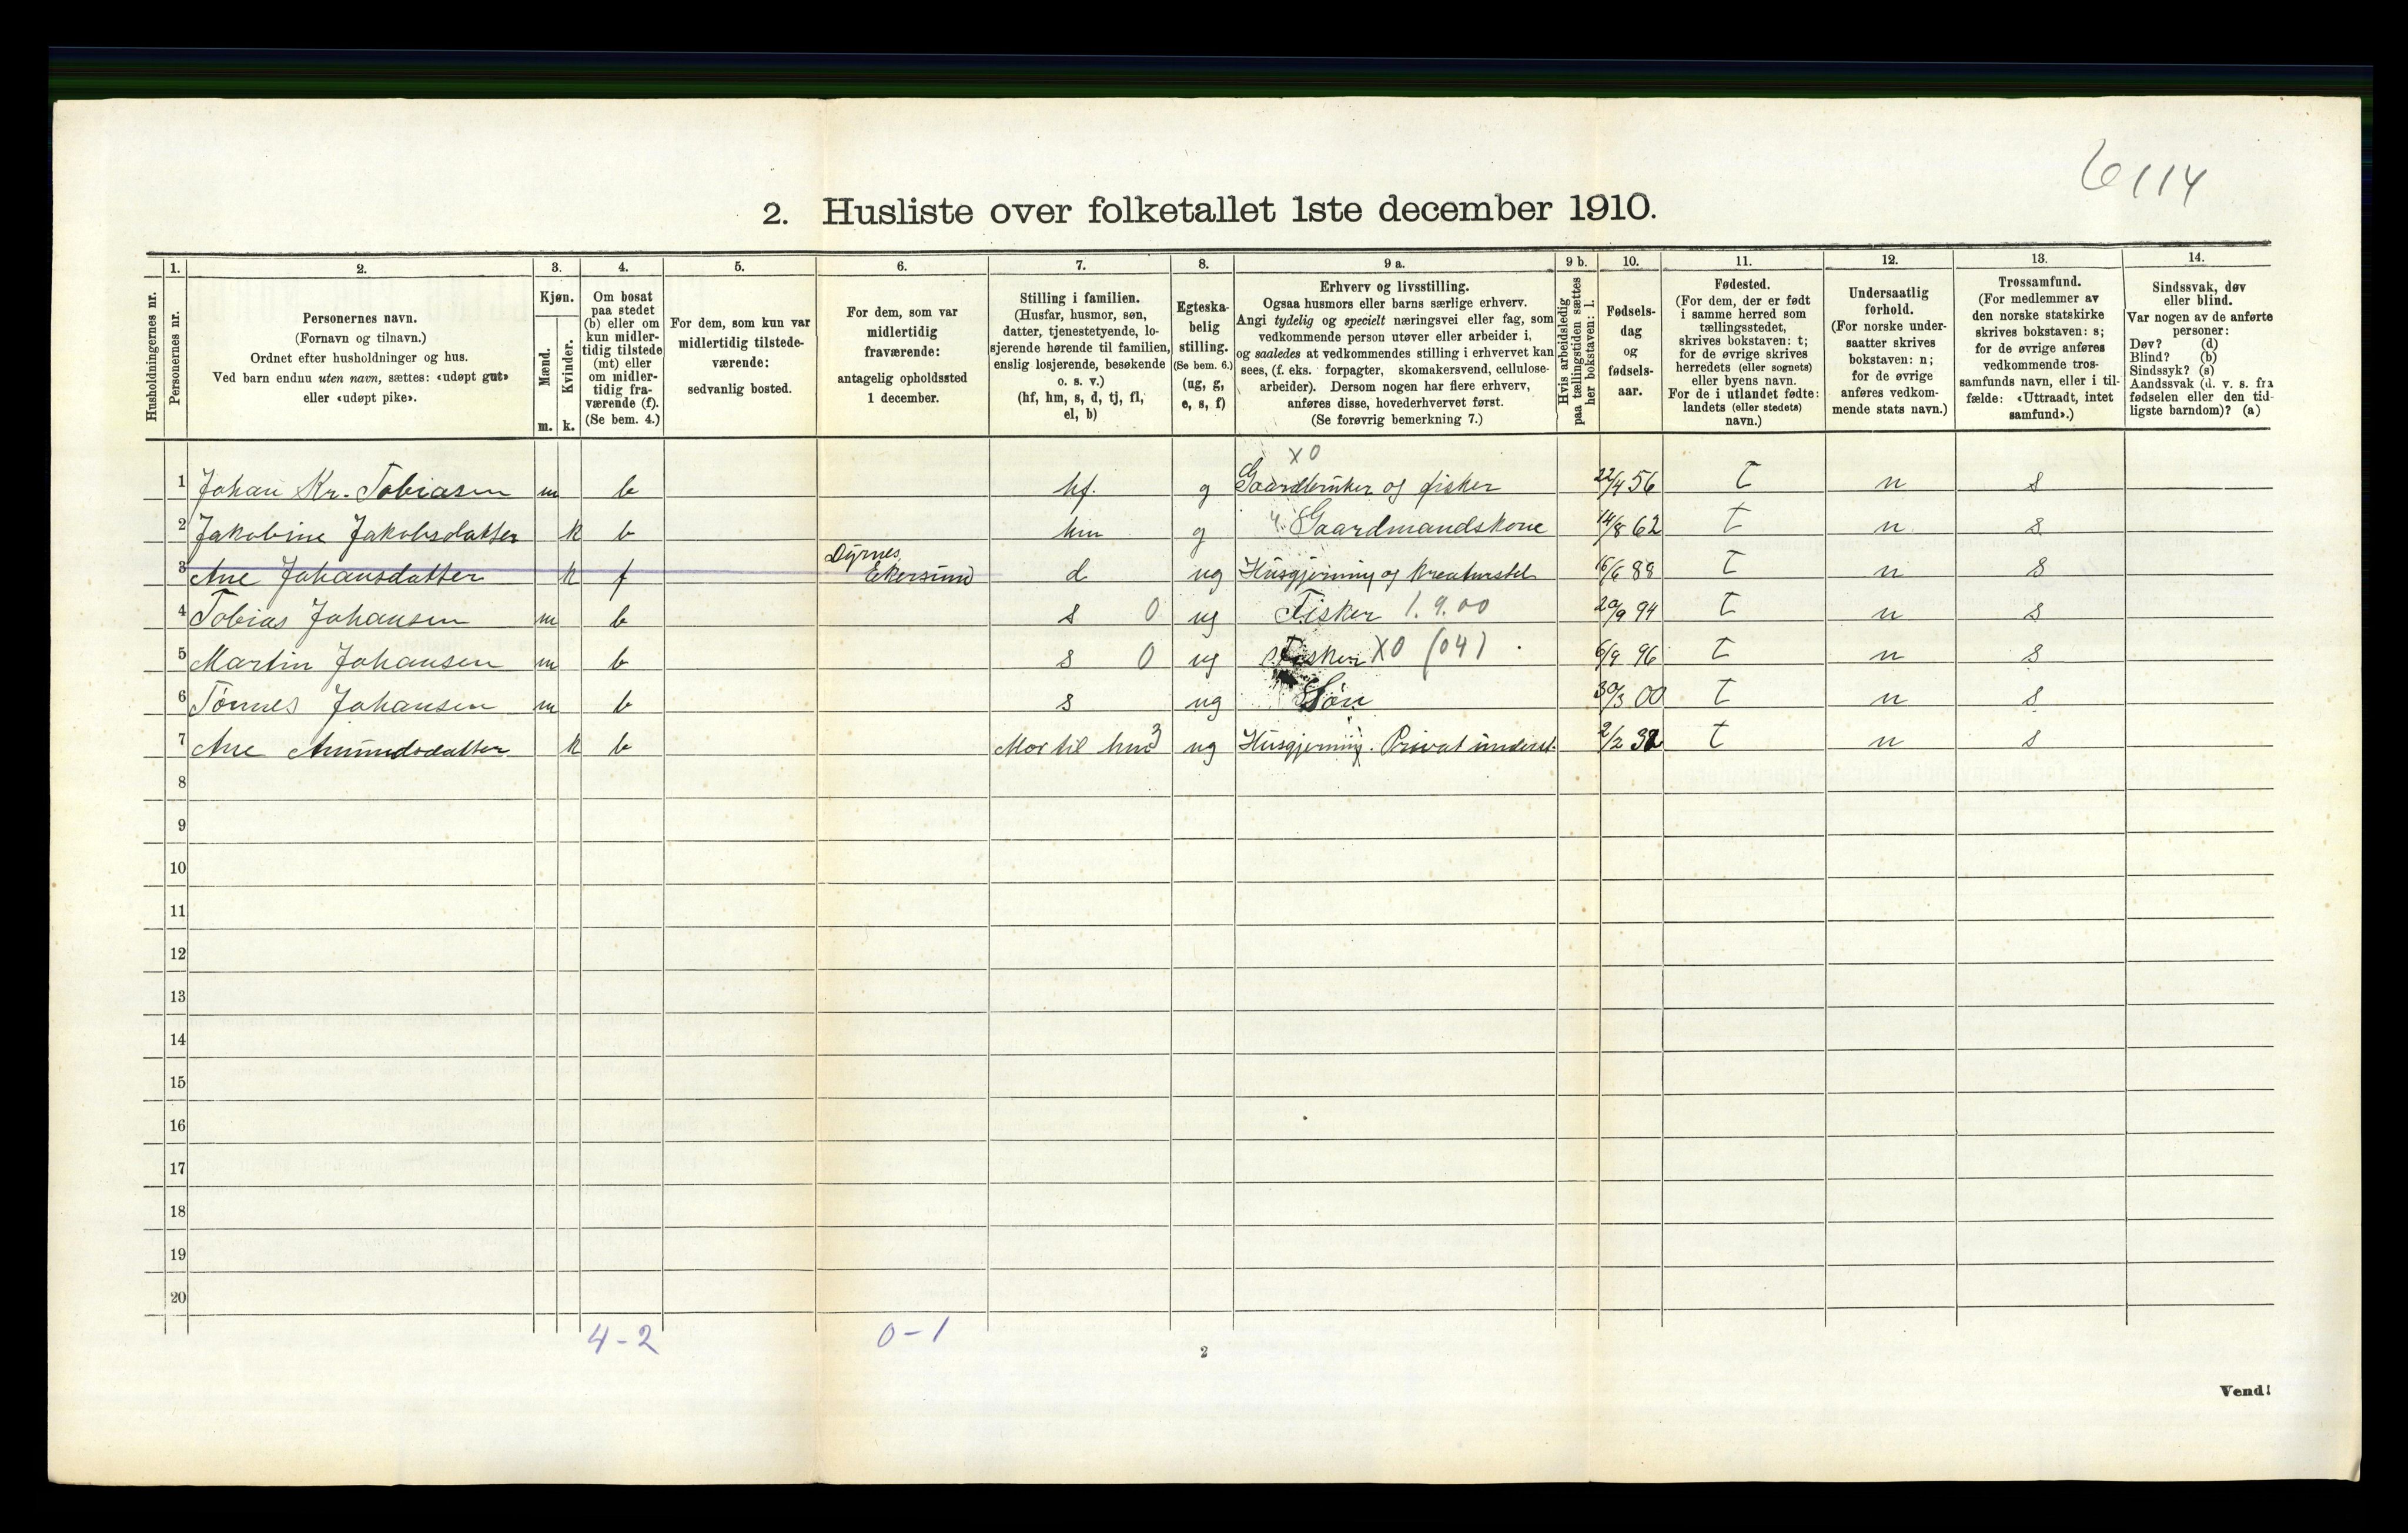 6114
2. Husliste over folketallet 1ste december 1910.
Husholdningernes nr.
1. Personernes nr.
2. Personernes navn.
(Fornavn og tilnavn.)
Ordnet efter husholdninger og hus.
Ved barn endnu uten navn, sættes: «udøpt gut»
eller «udøpt pike».
3. Kjøn.
Mænd. m.
Kvinder. k.
4. Om bosat
paa stedet
(b) eller om
kun midler-
tidig tilstede
(mt) eller
om midler-
tidig fra-
værende (f).
(Se bem. 4.)
5. For dem, som kun var
midlertidig tilstede-
værende:
sedvanlig bosted.
6. For dem, som var
midlertidig
fraværende:
antagelig opholdssted
1 december.
7. Stilling i familien.
(Husfar, husmor, søn,
datter, tjenestetyende, lo-
sjerende hørende til familien,
enslig losjerende, besøkende
o. s. v.)
(hf, hm, s, d, tj, fl,
el, b)
8. Egteska-
belig
stilling.
(Se bem. 6.)
(ug, g,
e, s, f)
9 a. Erhverv og livsstilling.
Ogsaa husmors eller barns særlige erhverv.
Angi tydelig og specielt næringsvei eller fag, som
vedkommende person utøver eller arbeider i,
og saaledes at vedkommendes stilling i erhvervet kan
sees, (f. eks. forpagter, skomakersvend, cellulose-
arbeider). Dersom nogen har flere erhverv,
anføres disse, hovederhvervet først.
(Se forøvrig bemerkning 7.)
9 b. Hvis arbeidsledig
paa tællingstiden sættes
her bokstaven: l.
10. Fødsels-
dag
og
fødsels-
aar.
11. Fødested.
(For dem, der er født
i samme herred som
tællingsstedet,
skrives bokstaven: t;
for de øvrige skrives
herredets (eller sognets)
eller byens navn.
For de i utlandet fødte:
landets (eller stedets)
navn.)
12. Undersaatlig
forhold.
(For norske under-
saatter skrives
bokstaven: n;
for de øvrige
anføres vedkom-
mende stats navn.)
13. Trossamfund.
(For medlemmer av
den norske statskirke
skrives bokstaven: s;
for de øvrige anføres
vedkommende tros-
samfunds navn, eller i til-
fælde: «Uttraadt, intet
samfund».)
14. Sindssvak, døv
eller blind.
Var nogen av de anførte
personer:
Døv? (d)
Blind? (b)
Sindssyk? (s)
Aandssvak (d. v. s. fra
fødselen eller den tid-
ligste barndom)? (a)
X0
1 Johan Kr. Tobiasen m b hf. g Gaardbruker og fisker 22/4 56 t n s
2 Jakobine Jakobsdatter k b hm g Gaardmandskone 14/8 62 t n s
Dyrnes
3 Ane Johansdatter k f Ekersund d ug Husgjerning og Kreaturstel 16/6 88 t n s
4 Tobias Johansen m b s 0 ug Fisker 1.9.00 20/9 94 t n s
5 Martin Johansen m b s 0 ug Fisker X0 (04) 6/9 96 t n s
6 Tønnes Johansen m b s ug Søn 30/3 00 t n s
7 Ane Amundsdatter k b Mor til hm 3 ug Husgjerning. Privat underst. 2/2 t n s
8
9
10
11
12
13
14
15
16
17
18
19
20
4-2 0-1
2
Vend!